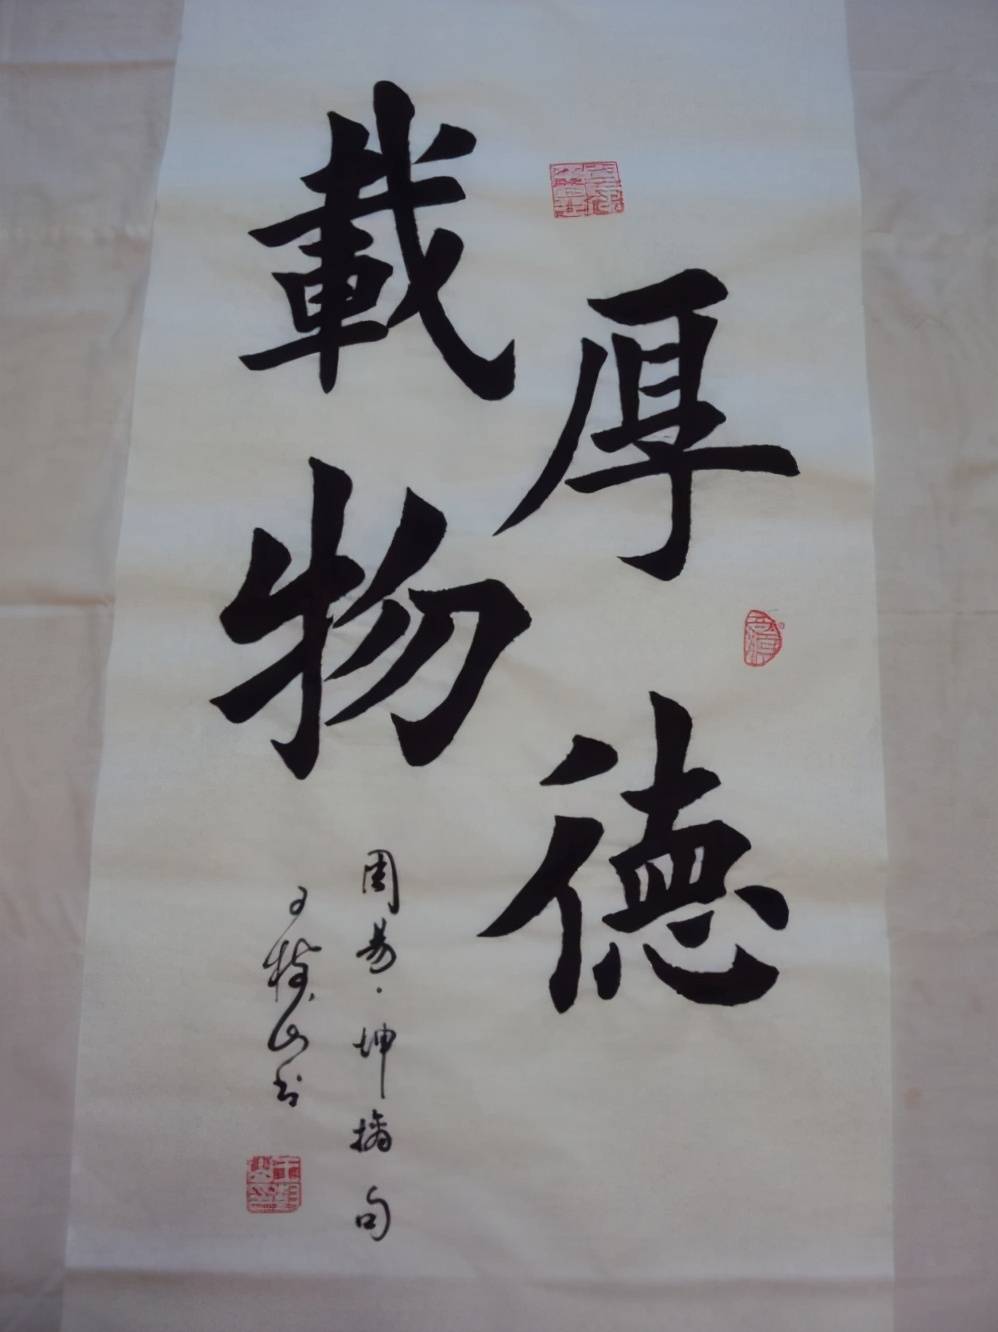 厚德
載物
周易·坤摘句
山书